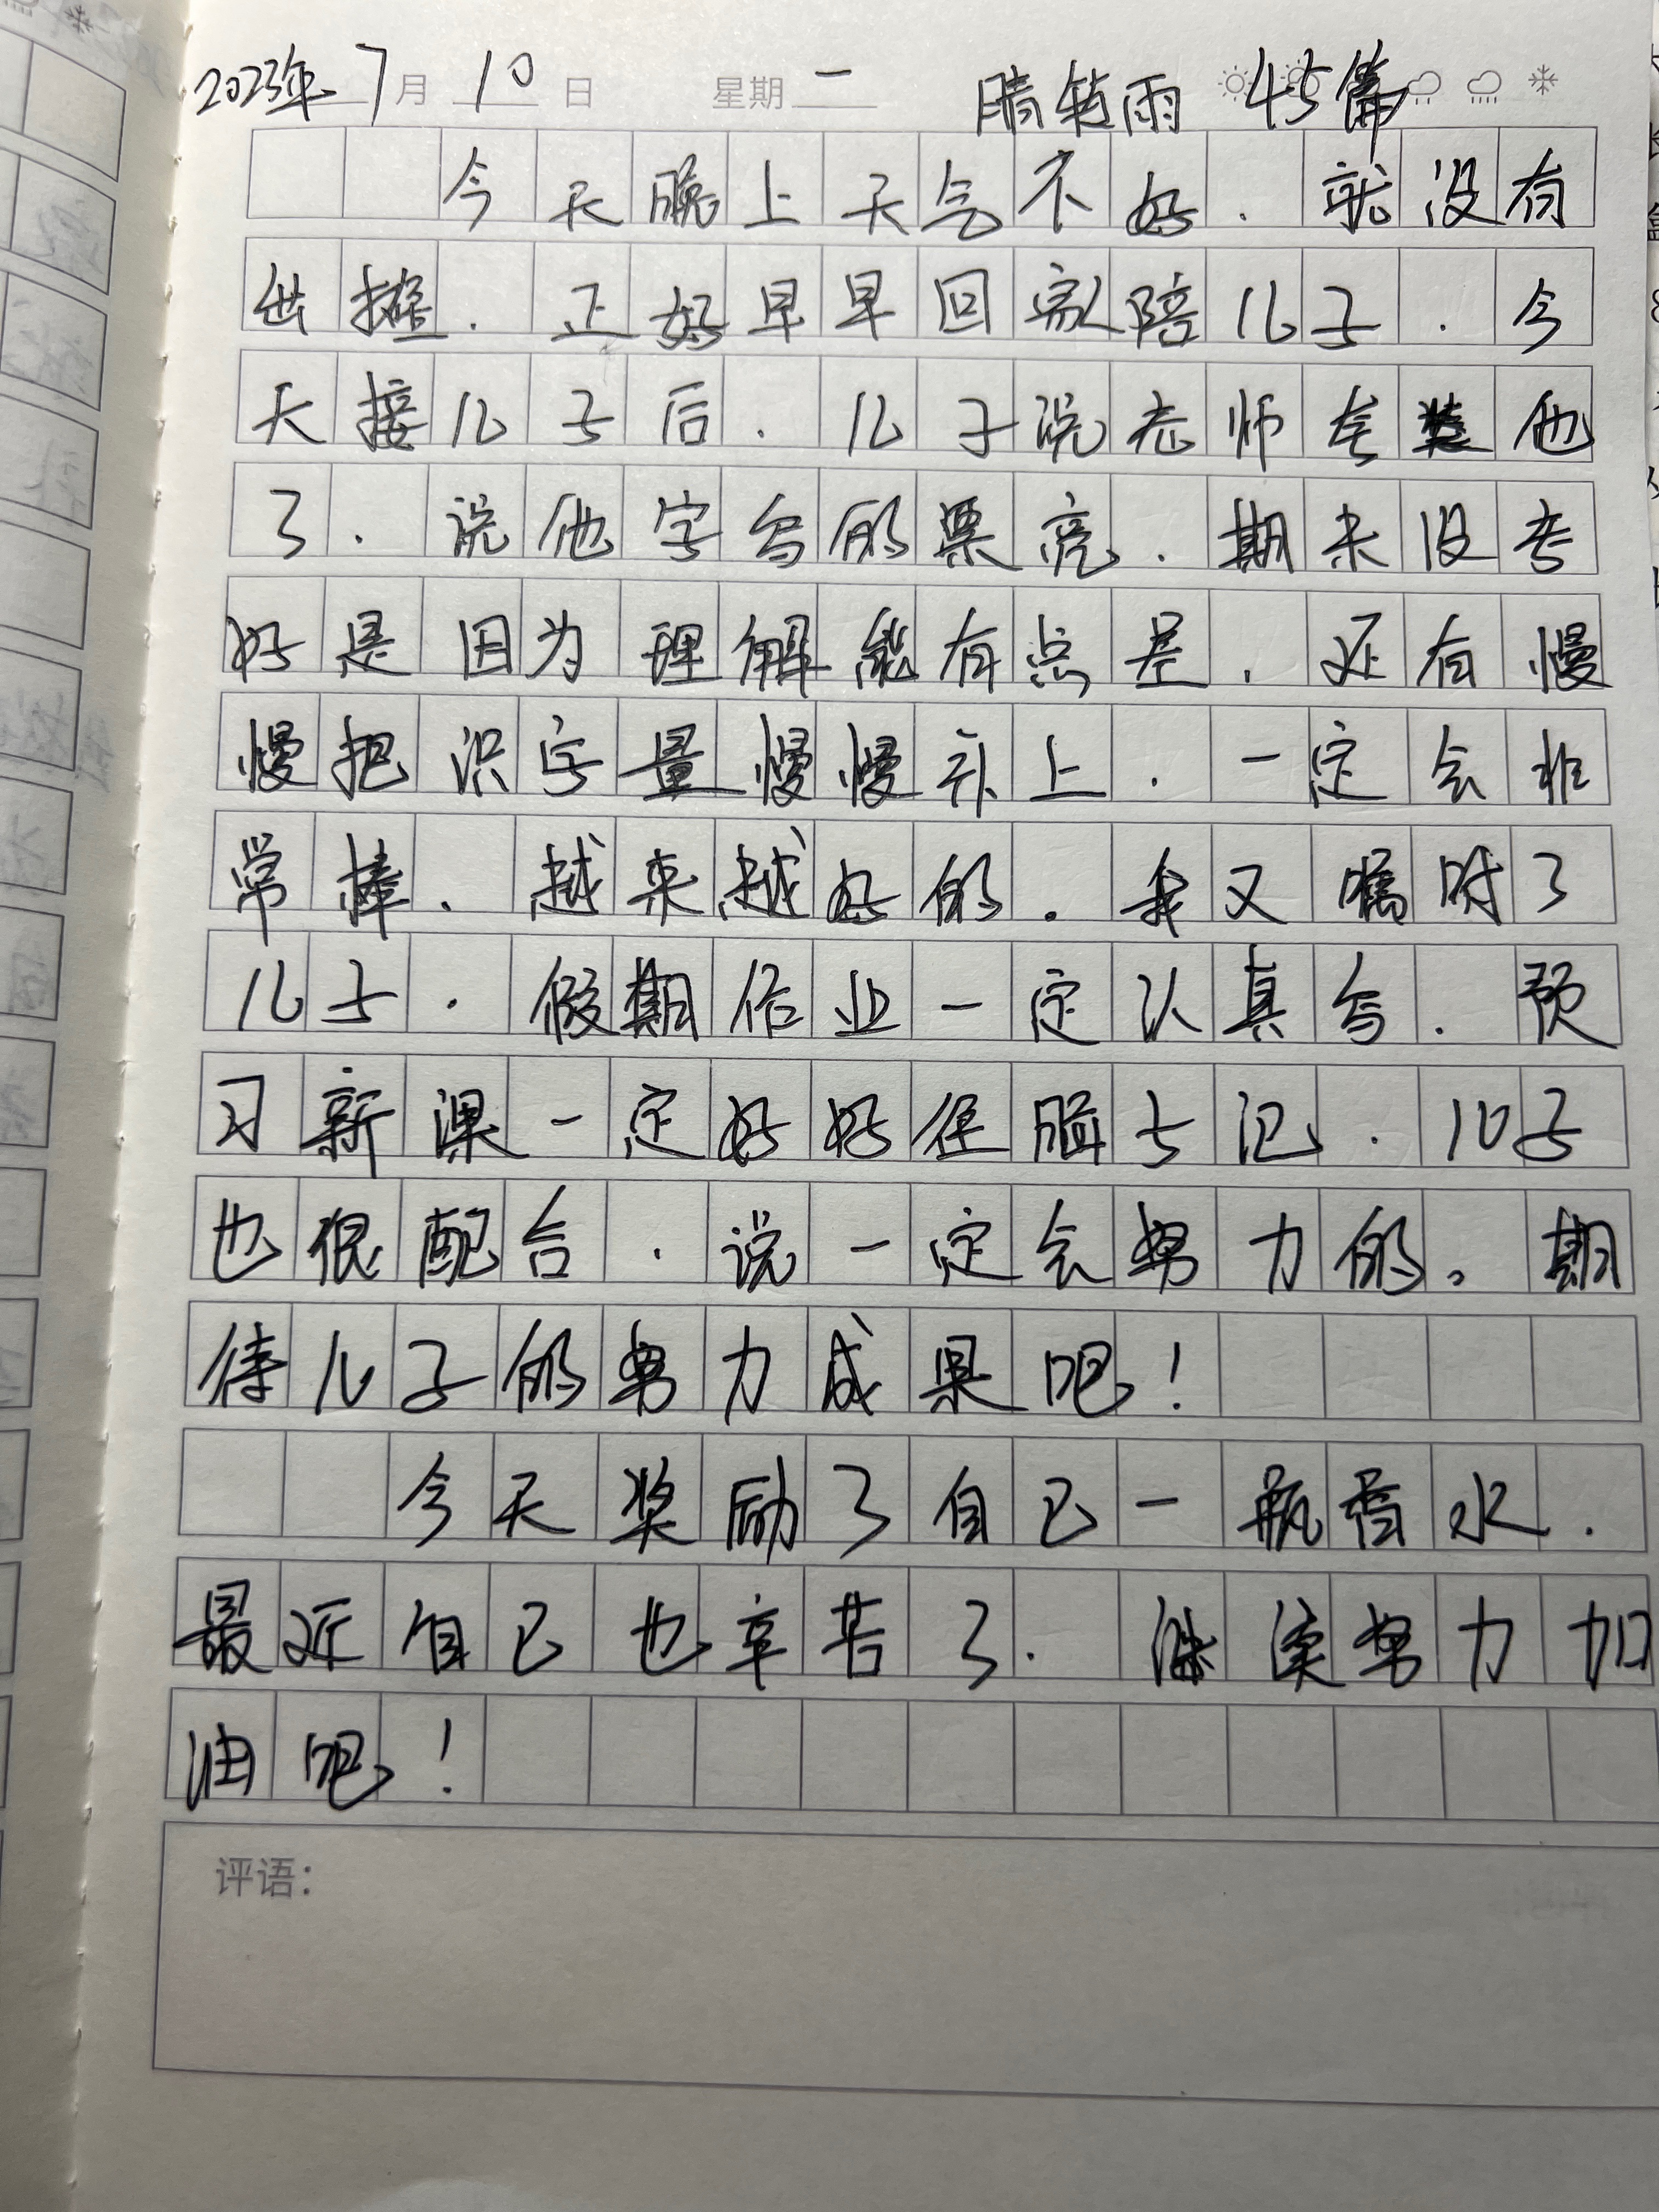 2023年 7月 10日 星期一 晴转雨 45篇
今天晚上天气不好.就没有
出摊.正好早早回家陪儿子.今
天接儿子后.儿子说老师夸奖他
了.说他字写的票亮.期末没考
好是因为理解能有点差.还有慢
慢把识字量慢慢补上.一定会非
常棒.越来越好的.我又嘱咐了
儿子.假期作业一定认真写.预
习新课一定好好往脑子记.儿子
也很配合.说一定会努力的。期
待儿子的努力成果吧!
今天奖励了自己一瓶香水.
最近自己也辛苦了.继续努力加
油吧!
评语: